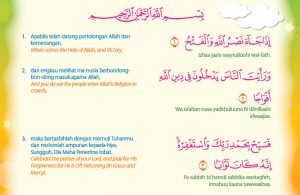 بِسْمِ اللَّهِ الرَّحْمَٰنِ الرَّحِيمِ
1. Apabila telah datang pertolongan Allah dan
kemenangan,
When comes the Help of Allah, and Victory,
إِذَا جَاءَ نَصْرُ اللَّهِ وَالْفَتْحُ
١
Izaa jaa'a nasyrullohi wal-fath.
2. dan engkau melihat ma-nusia berbondong-
bondong masuk agama Allah,
And you do see the people enter Allah's Religion in
crowds,
وَرَأَيْتَ النَّاسَ يَدْخُلُونَ فِي دِينِ اللَّهِ
أَفْوَاجًا
٢
Wa ra'aitan-nasa yadkhuluuna fii diinillahi
afwaajaa.
3. maka bertasbihlah dengan memuji Tuhanmu
dan mohonlah ampunan kepada-Nya.
Sungguh, Dia Maha Penerima tobat.
Celebrate the praises of your Lord, and pray for His
Forgiveness: for He is Oft-Returning (in Grace and
Mercy).
فَسَبِّحْ بِحَمْدِ رَبِّكَ وَاسْتَغْفِرْهُ
إِنَّهُ كَانَ تَوَّابًا
٣
Fa sabbih bi hamdi rabbika wastagfirh,
innahuu kaana tawwaabaa.